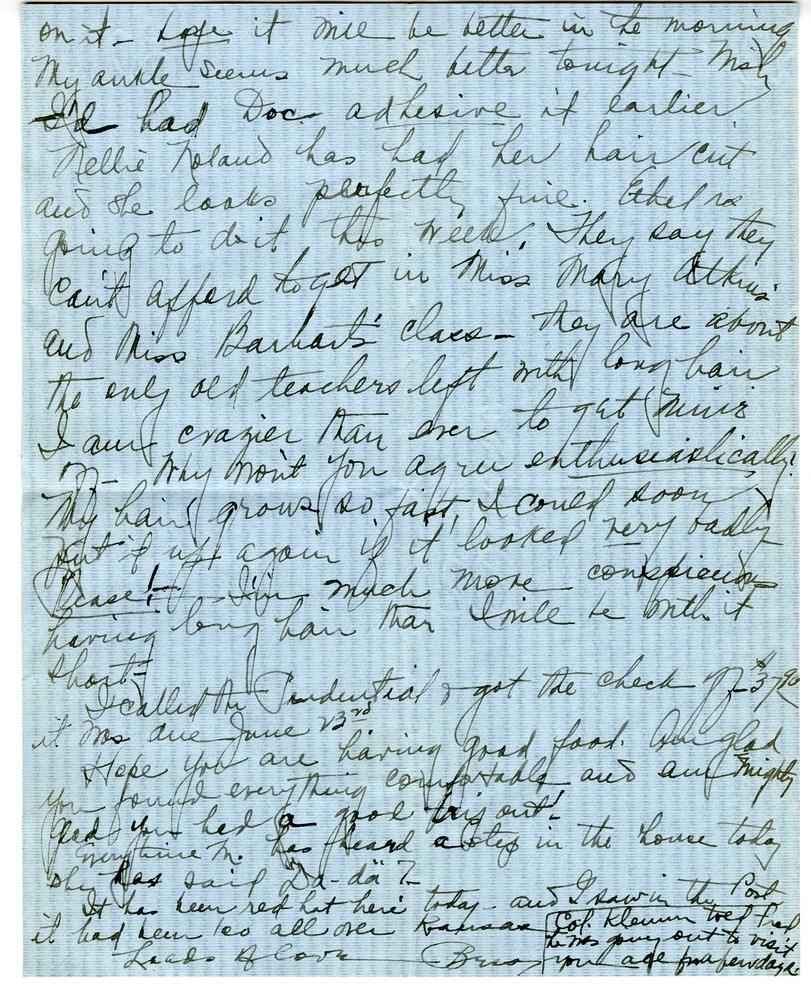 on it - hope it will be better in the morning
My ankle seems much better tonight - Wish
I'd had Doc. adhesive it earlier
Nellie Noland has had her hair cut
and she looks perfectly fine. Ethel is
going to do it this week. They say they
can't afford to get in Miss Mary Atkins'
and Miss Barhart's class - they are about
the only old teachers left with long hair
I am crazier than ever to get mine
off - Why won't you agree enthusiastically!
My hair grows so fast, I could soon
put it up again if it looked very badly
Please! - I'm much more conspicuous
having long hair than I will be with it
short -
I called the Prudential & got the check of $3.90
it was due June 23rd
Hope you are having good food. Am glad
you found everything comfortable and am mighty
glad you had a good trip out!
Everytime M. has heard a step in the house today
she has said "Da-da"?
It has been red hot here today - and I saw in the Post
it had been 100 all over Kansas
Loads of love
Bess
Col. Klemm told Fred
he was going out to visit
you all for few days.